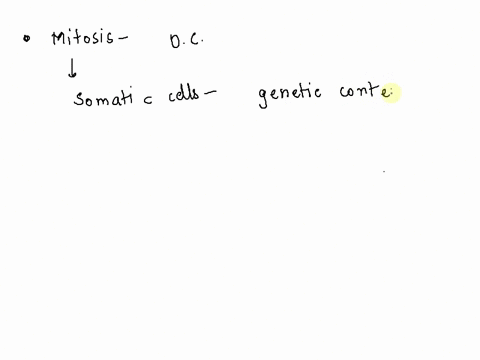 • Mitosis – D.C.
↓
Somatic cells – genetic conte